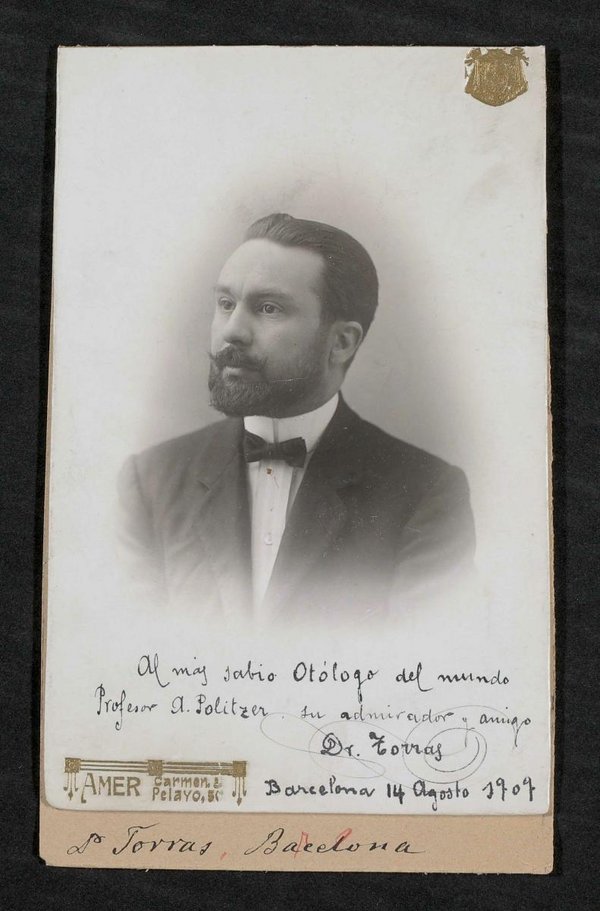 Al más sabio Otólogo del mundo
Profesor A. Politzer su admirador y amigo
Dr. Torras
Barcelona 14 Agosto 1907
AMER Carmen, 2
Pelayo, 50
Dr Torras, Barcelona